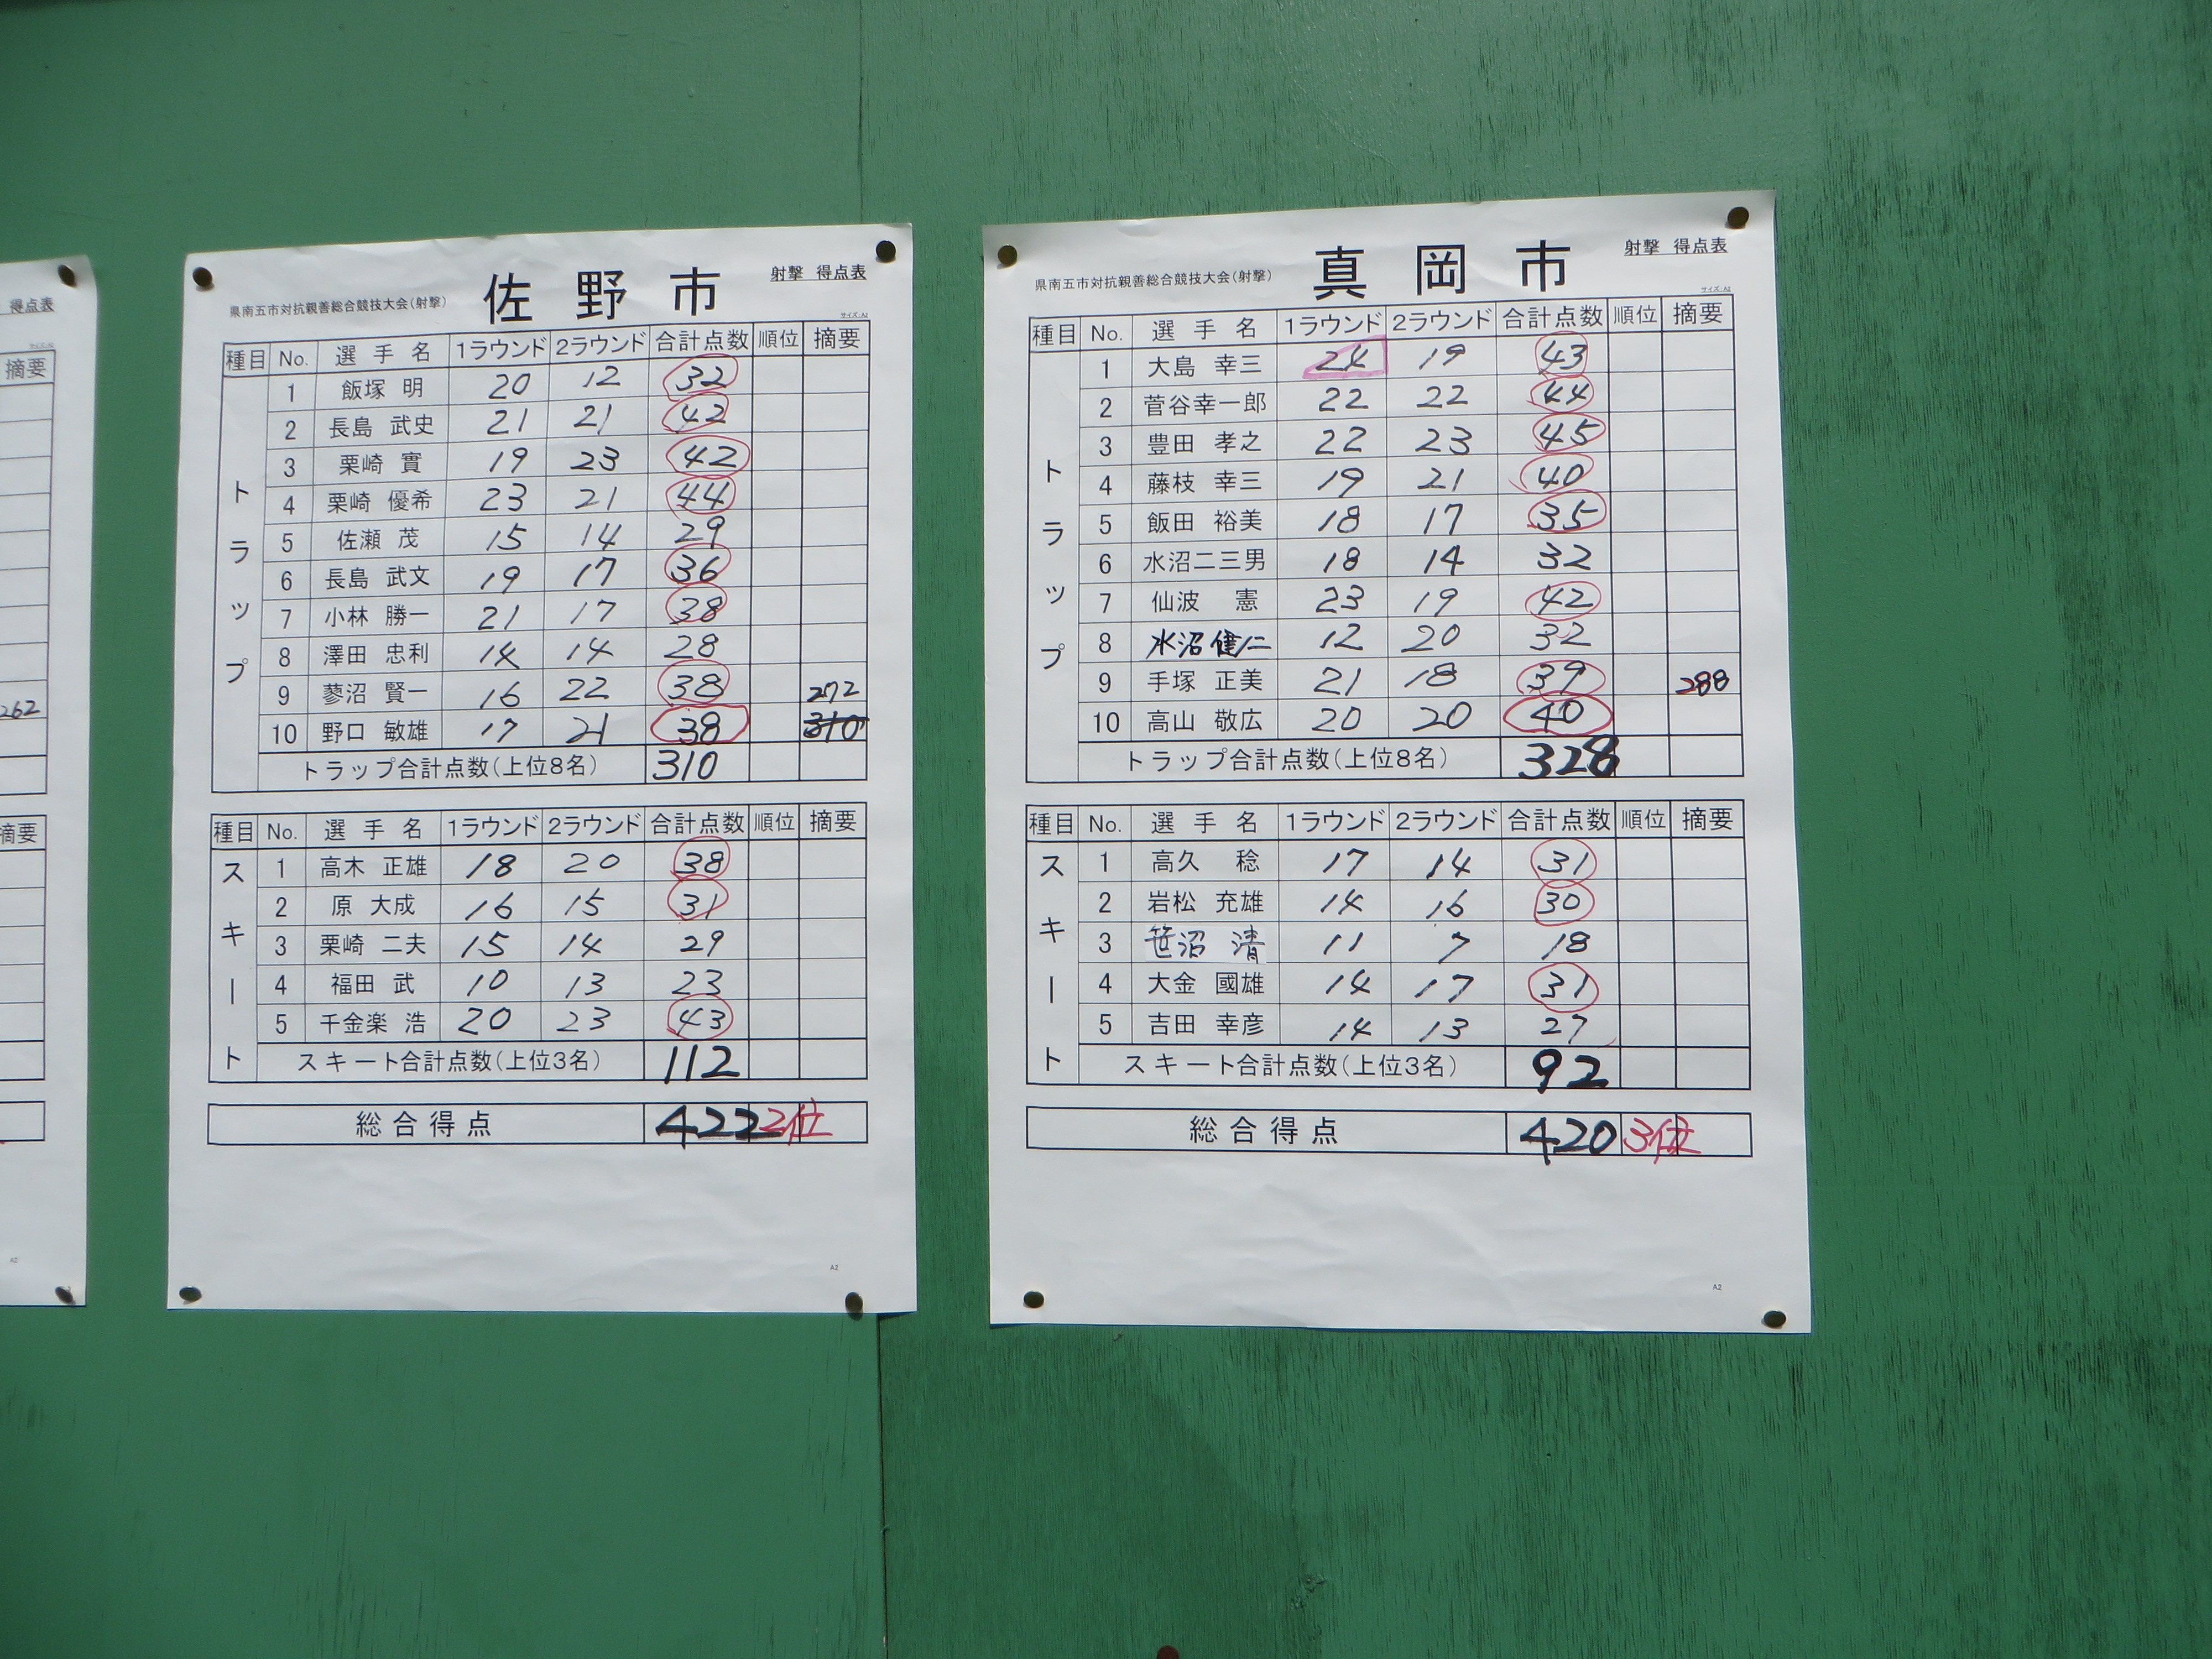 得点表
摘要
262
摘要
A2
県南五市対抗親善総合競技大会(射撃) 佐野市 射撃 得点表
サイズ:A2
種目 No. 選手名 1ラウンド 2ラウンド 合計点数 順位 摘要
トラップ
1 飯塚 明 20 12 32
2 長島 武史 21 21 42
3 栗崎 實 19 23 42
4 栗崎 優希 23 21 44
5 佐瀬 茂 15 14 29
6 長島 武文 19 17 36
7 小林 勝一 21 17 38
8 澤田 忠利 14 14 28
9 蓼沼 賢一 16 22 38 272
10 野口 敏雄 17 21 38 310
トラップ合計点数(上位8名) 310
種目 No. 選手名 1ラウンド 2ラウンド 合計点数 順位 摘要
スキート
1 高木 正雄 18 20 38
2 原 大成 16 15 31
3 栗崎 二夫 15 14 29
4 福田 武 10 13 23
5 千金楽 浩 20 23 43
スキート合計点数(上位3名) 112
総合得点 422 2位
A2
県南五市対抗親善総合競技大会(射撃) 真岡市 射撃 得点表
サイズ:A2
種目 No. 選手名 1ラウンド 2ラウンド 合計点数 順位 摘要
トラップ
1 大島 幸三 24 19 43
2 菅谷幸一郎 22 22 44
3 豊田 孝之 22 23 45
4 藤枝 幸三 19 21 40
5 飯田 裕美 18 17 35
6 水沼二三男 18 14 32
7 仙波 憲 23 19 42
8 水沼健仁 12 20 32
9 手塚 正美 21 18 39 288
10 高山 敬広 20 20 40
トラップ合計点数(上位8名) 328
種目 No. 選手名 1ラウンド 2ラウンド 合計点数 順位 摘要
スキート
1 高久 稔 17 14 31
2 岩松 充雄 14 16 30
3 笹沼 清 11 7 18
4 大金 國雄 14 17 31
5 吉田 幸彦 14 13 27
スキート合計点数(上位3名) 92
総合得点 420 3位
A2